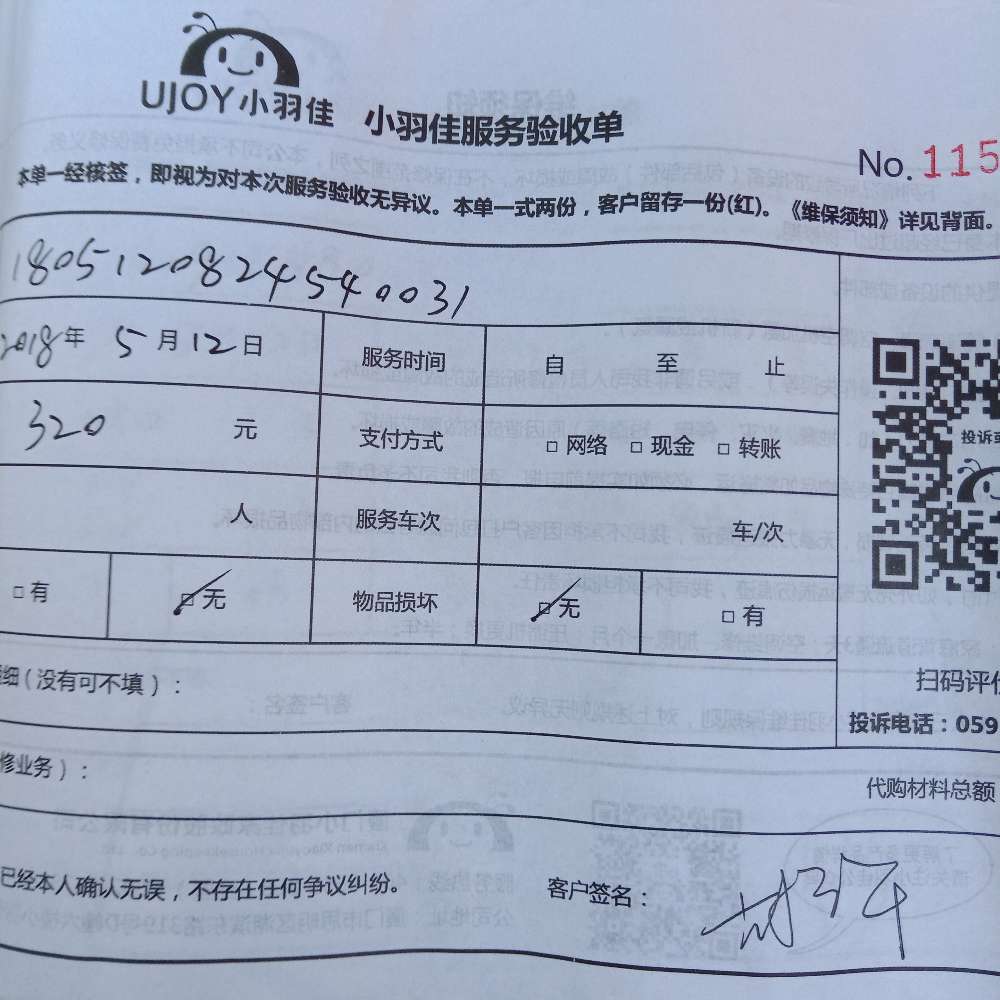 UJOY小羽佳 小羽佳服务验收单
No. 115
本单一经核签，即视为对本次服务验收无异议。本单一式两份，客户留存一份(红)。《维保须知》详见背面。
180512082454540031
2018年 5月12日 服务时间 自 至 止
320 元 支付方式 □ 网络 □ 现金 □ 转账
投诉或
人 服务车次 车/次
□ 有 □ 无 物品损坏 □ 无 □ 有
细(没有可不填)：
扫码评价
投诉电话：059
修业务)：
代购材料总额
已经本人确认无误，不存在任何争议纠纷。 客户签名：